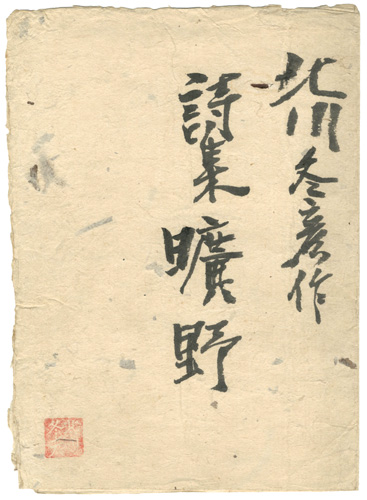 北川冬彦作
詩集
曠野